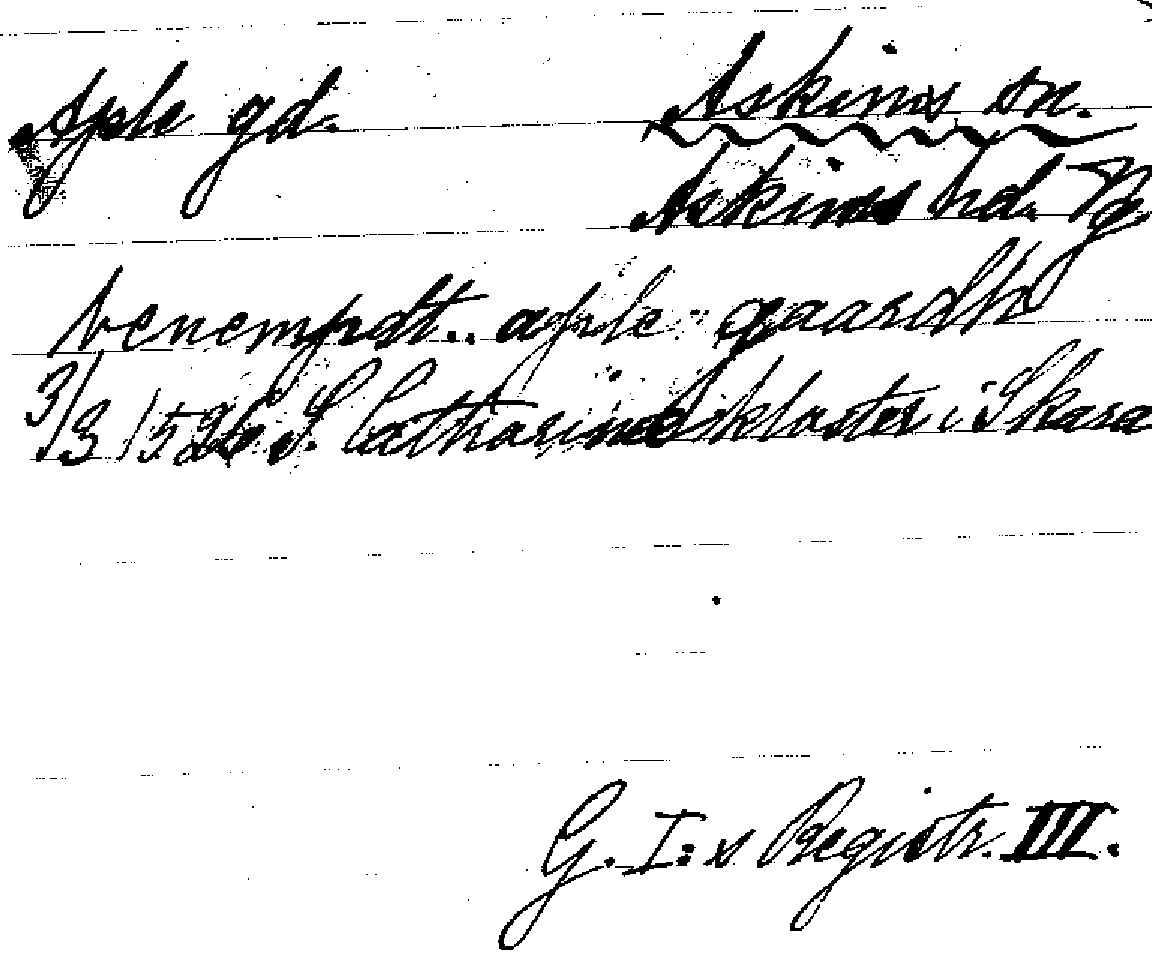 Aple gd. Askims sn.
Askims hd. Vg.
benempdt.. aple gaardh
3/3 1526 S. Catharinæ kloster i Skara
G. I:s Registr. III.